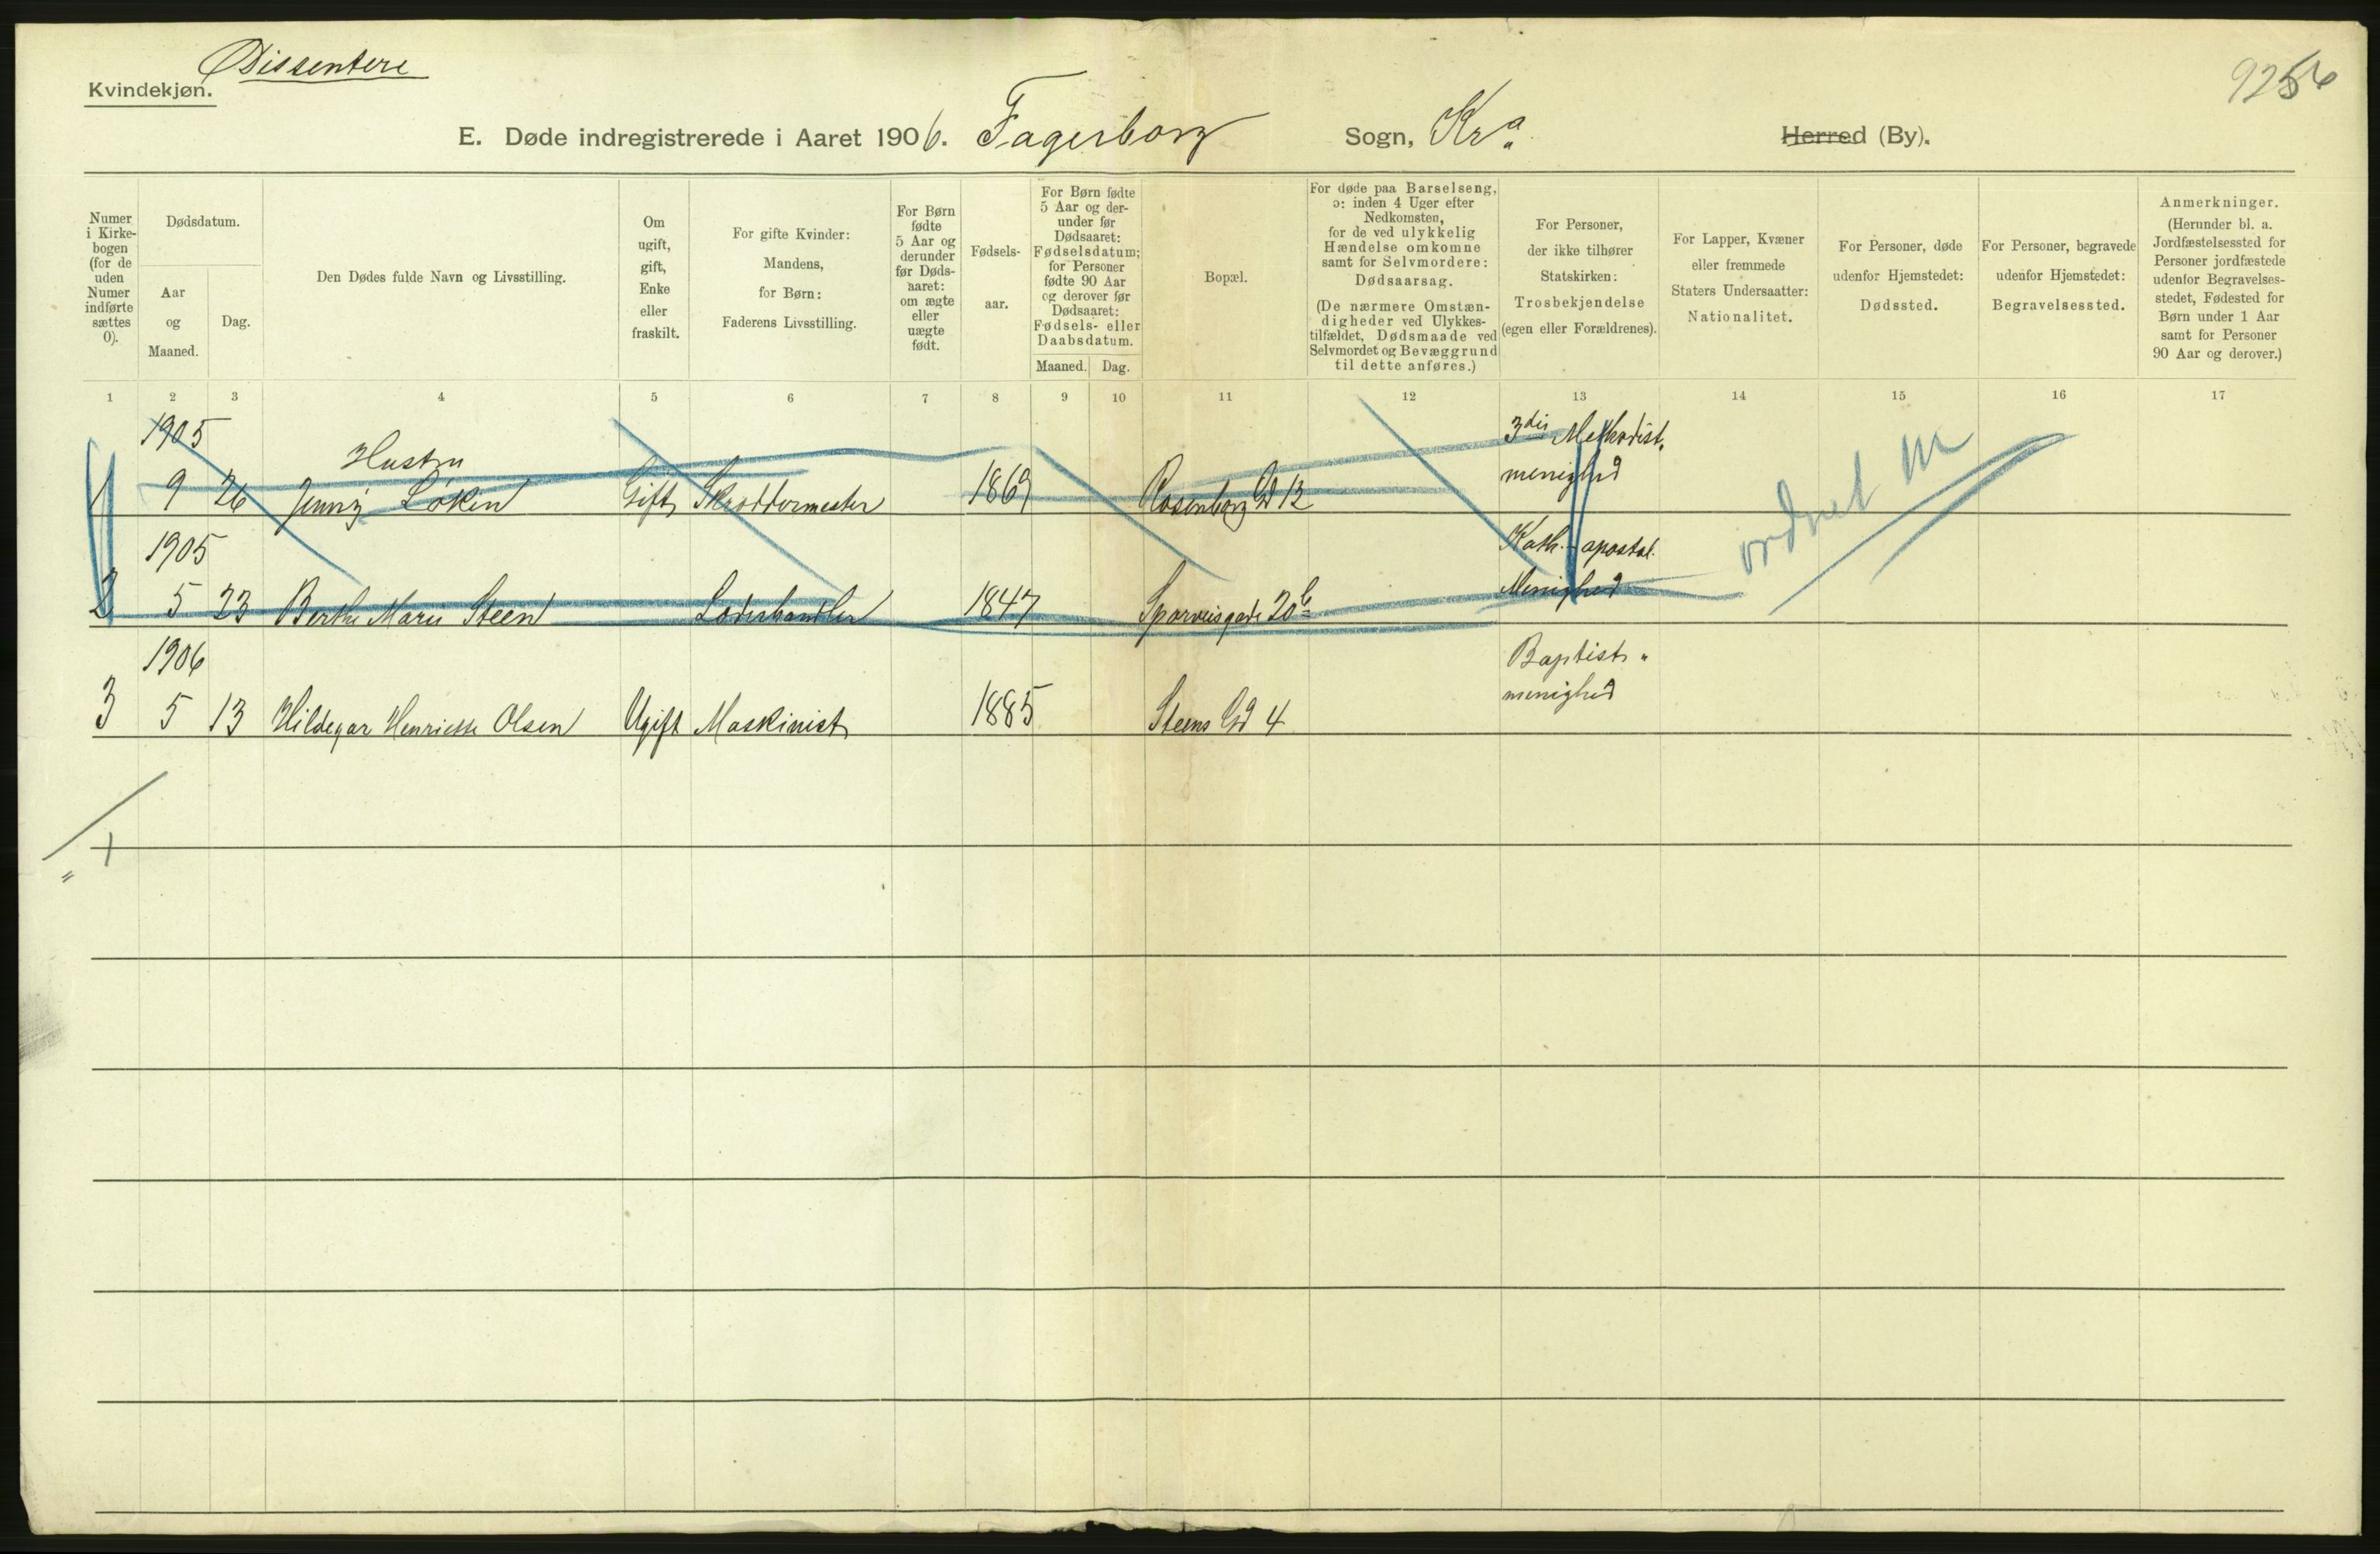 Dissentere
Kvindekjøn.
925
E. Døde indregistrerede i Aaret 1906. Fagerborg Sogn, Kra Herred (By).
Numer
i Kirke-
bogen
(for de
uden
Numer
indførte
sættes
0).
Dødsdatum.
Aar
og
Maaned.
Dag.
Den Dødes fulde Navn og Livsstilling.
Om
ugift,
gift,
Enke
eller
fraskilt.
For gifte Kvinder:
Mandens,
for Børn:
Faderens Livsstilling.
For Børn
fødte
5 Aar og
derunder
før Døds-
aaret:
om ægte
eller
uægte
født.
Fødsels-
aar.
For Børn fødte
5 Aar og der-
under før
Dødsaaret:
Fødselsdatum;
for Personer
fødte 90 Aar
og derover før
Dødsaaret:
Fødsels- eller
Daabsdatum.
Maaned. Dag.
Bopæl.
For døde paa Barselseng,
ɔ: inden 4 Uger efter
Nedkomsten,
for de ved ulykkelig
Hændelse omkomne
samt for Selvmordere:
Dødsaarsag.
(De nærmere Omstæn-
digheder ved Ulykkes-
tilfældet, Dødsmaade ved
Selvmordet og Bevæggrund
til dette anføres.)
For Personer,
der ikke tilhører
Statskirken:
Trosbekjendelse
(egen eller Forældrenes).
For Lapper, Kvæner
eller fremmede
Staters Undersaatter:
Nationalitet.
For Personer, døde
udenfor Hjemstedet:
Dødssted.
For Personer, begravede
udenfor Hjemstedet:
Begravelsessted.
Anmerkninger.
(Herunder bl. a.
Jordfæstelsessted for
Personer jordfæstede
udenfor Begravelses-
stedet, Fødested for
Børn under 1 Aar
samt for Personer
90 Aar og derover.)
1 2 3 4 5 6 7 8 9 10 11 12 13 14 15 16 17
1905 3die Methodist.
Hustru
1 9 26 Jenny Løken Gift Skræddermester 1869 Rosenborg Gd 12 menighed
ordnet
1905 Kath.- apostol.
2 5 23 Berthe Marie Steen Læderhandler 1847 Sporveisgade 20b Menighed
1906 Baptist "
3 5 13 Hildegar Henriette Olsen Ugift Maskinist 1885 Steens Gd 4 menighed